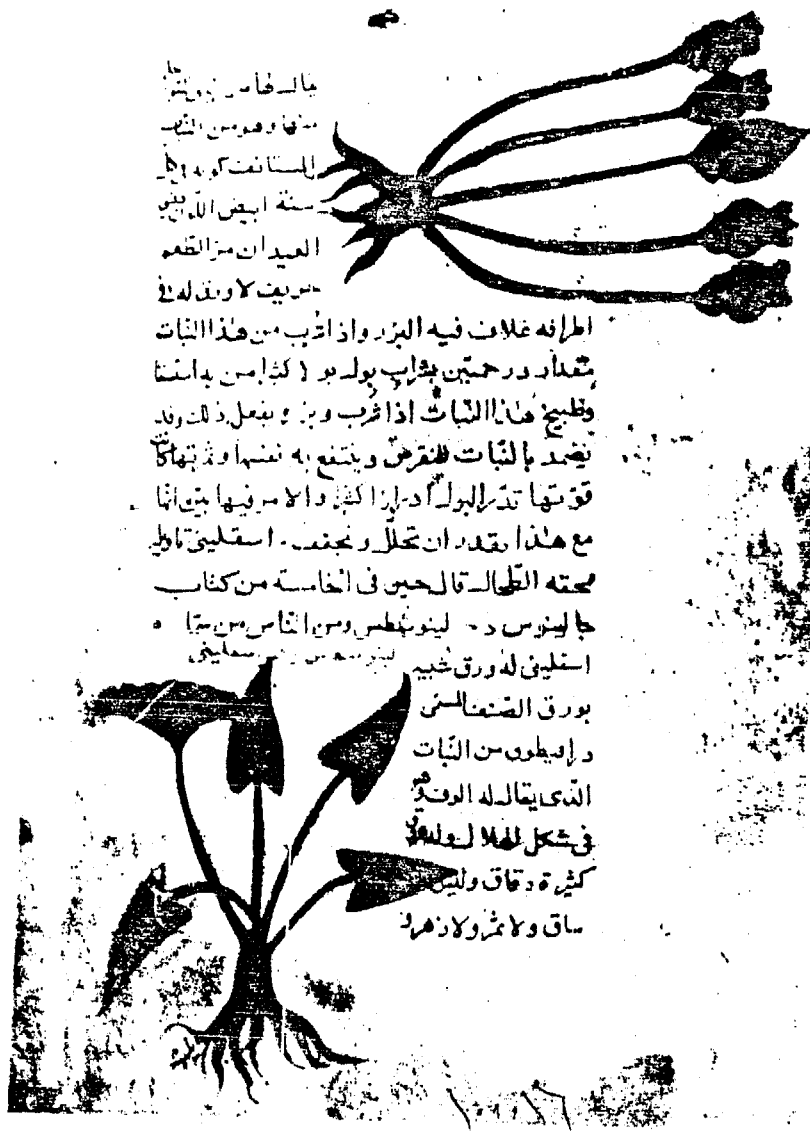 منها وهو من النبات
المستانف كونه في كل
سنة ابيض اللون دقيق
العيدان مر الطعم
حريف لا ورق له في
اطرافه غلاف فيه البزر واذا شرب من هذا النبات
مقدار درخمتين بشراب بول بولا كثيرا من به استسقا
وطبيخ هذا النبات اذا شرب وبزره يفعل ذلك وقد
يضمد بالنبات للنقرس وينتفع به نفسها وثمرتها كانت
قوتها تدر البول ادرارا كثيرا والامر فيها بين وانها
مع هذا تقدر ان تحلل وتجفف. اسقليني تاويل
محقه الطحال قال حنين في الخامسة من كتاب
جالينوس د لينوبطس ومن الناس من سما
اسقليني له ورق شبيه
بورق الصنف المسمى
دراقيطون من النبات
الذي يقال له الوف وهو
في شكل الهلال وله
كثيرة دقاق وليس
ساق ولا ثمر ولا زهر و